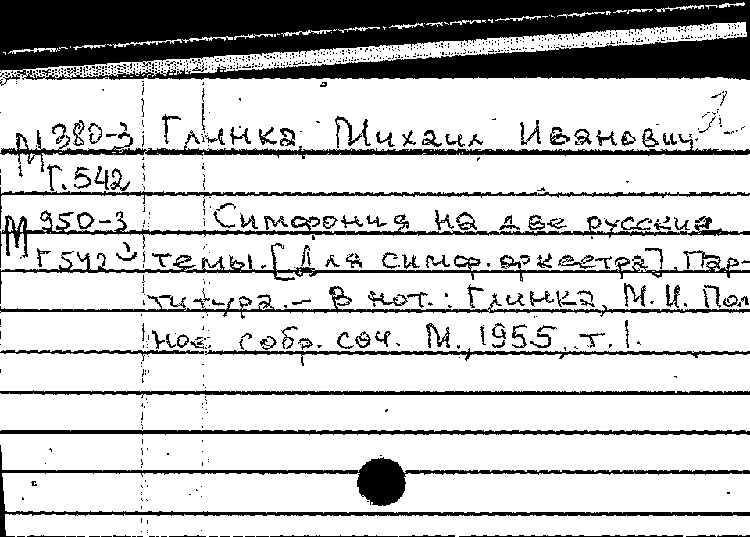 М 380-3 Глинка, Михаил Иванович 2
Г.542
М 950-3 Симфония на две русские
Г 542 темы. [Для симф. оркестра]. Пар-
титура. – В нот.: Глинка, М.И. Пол
ное собр. соч. М., 1955, т. 1.